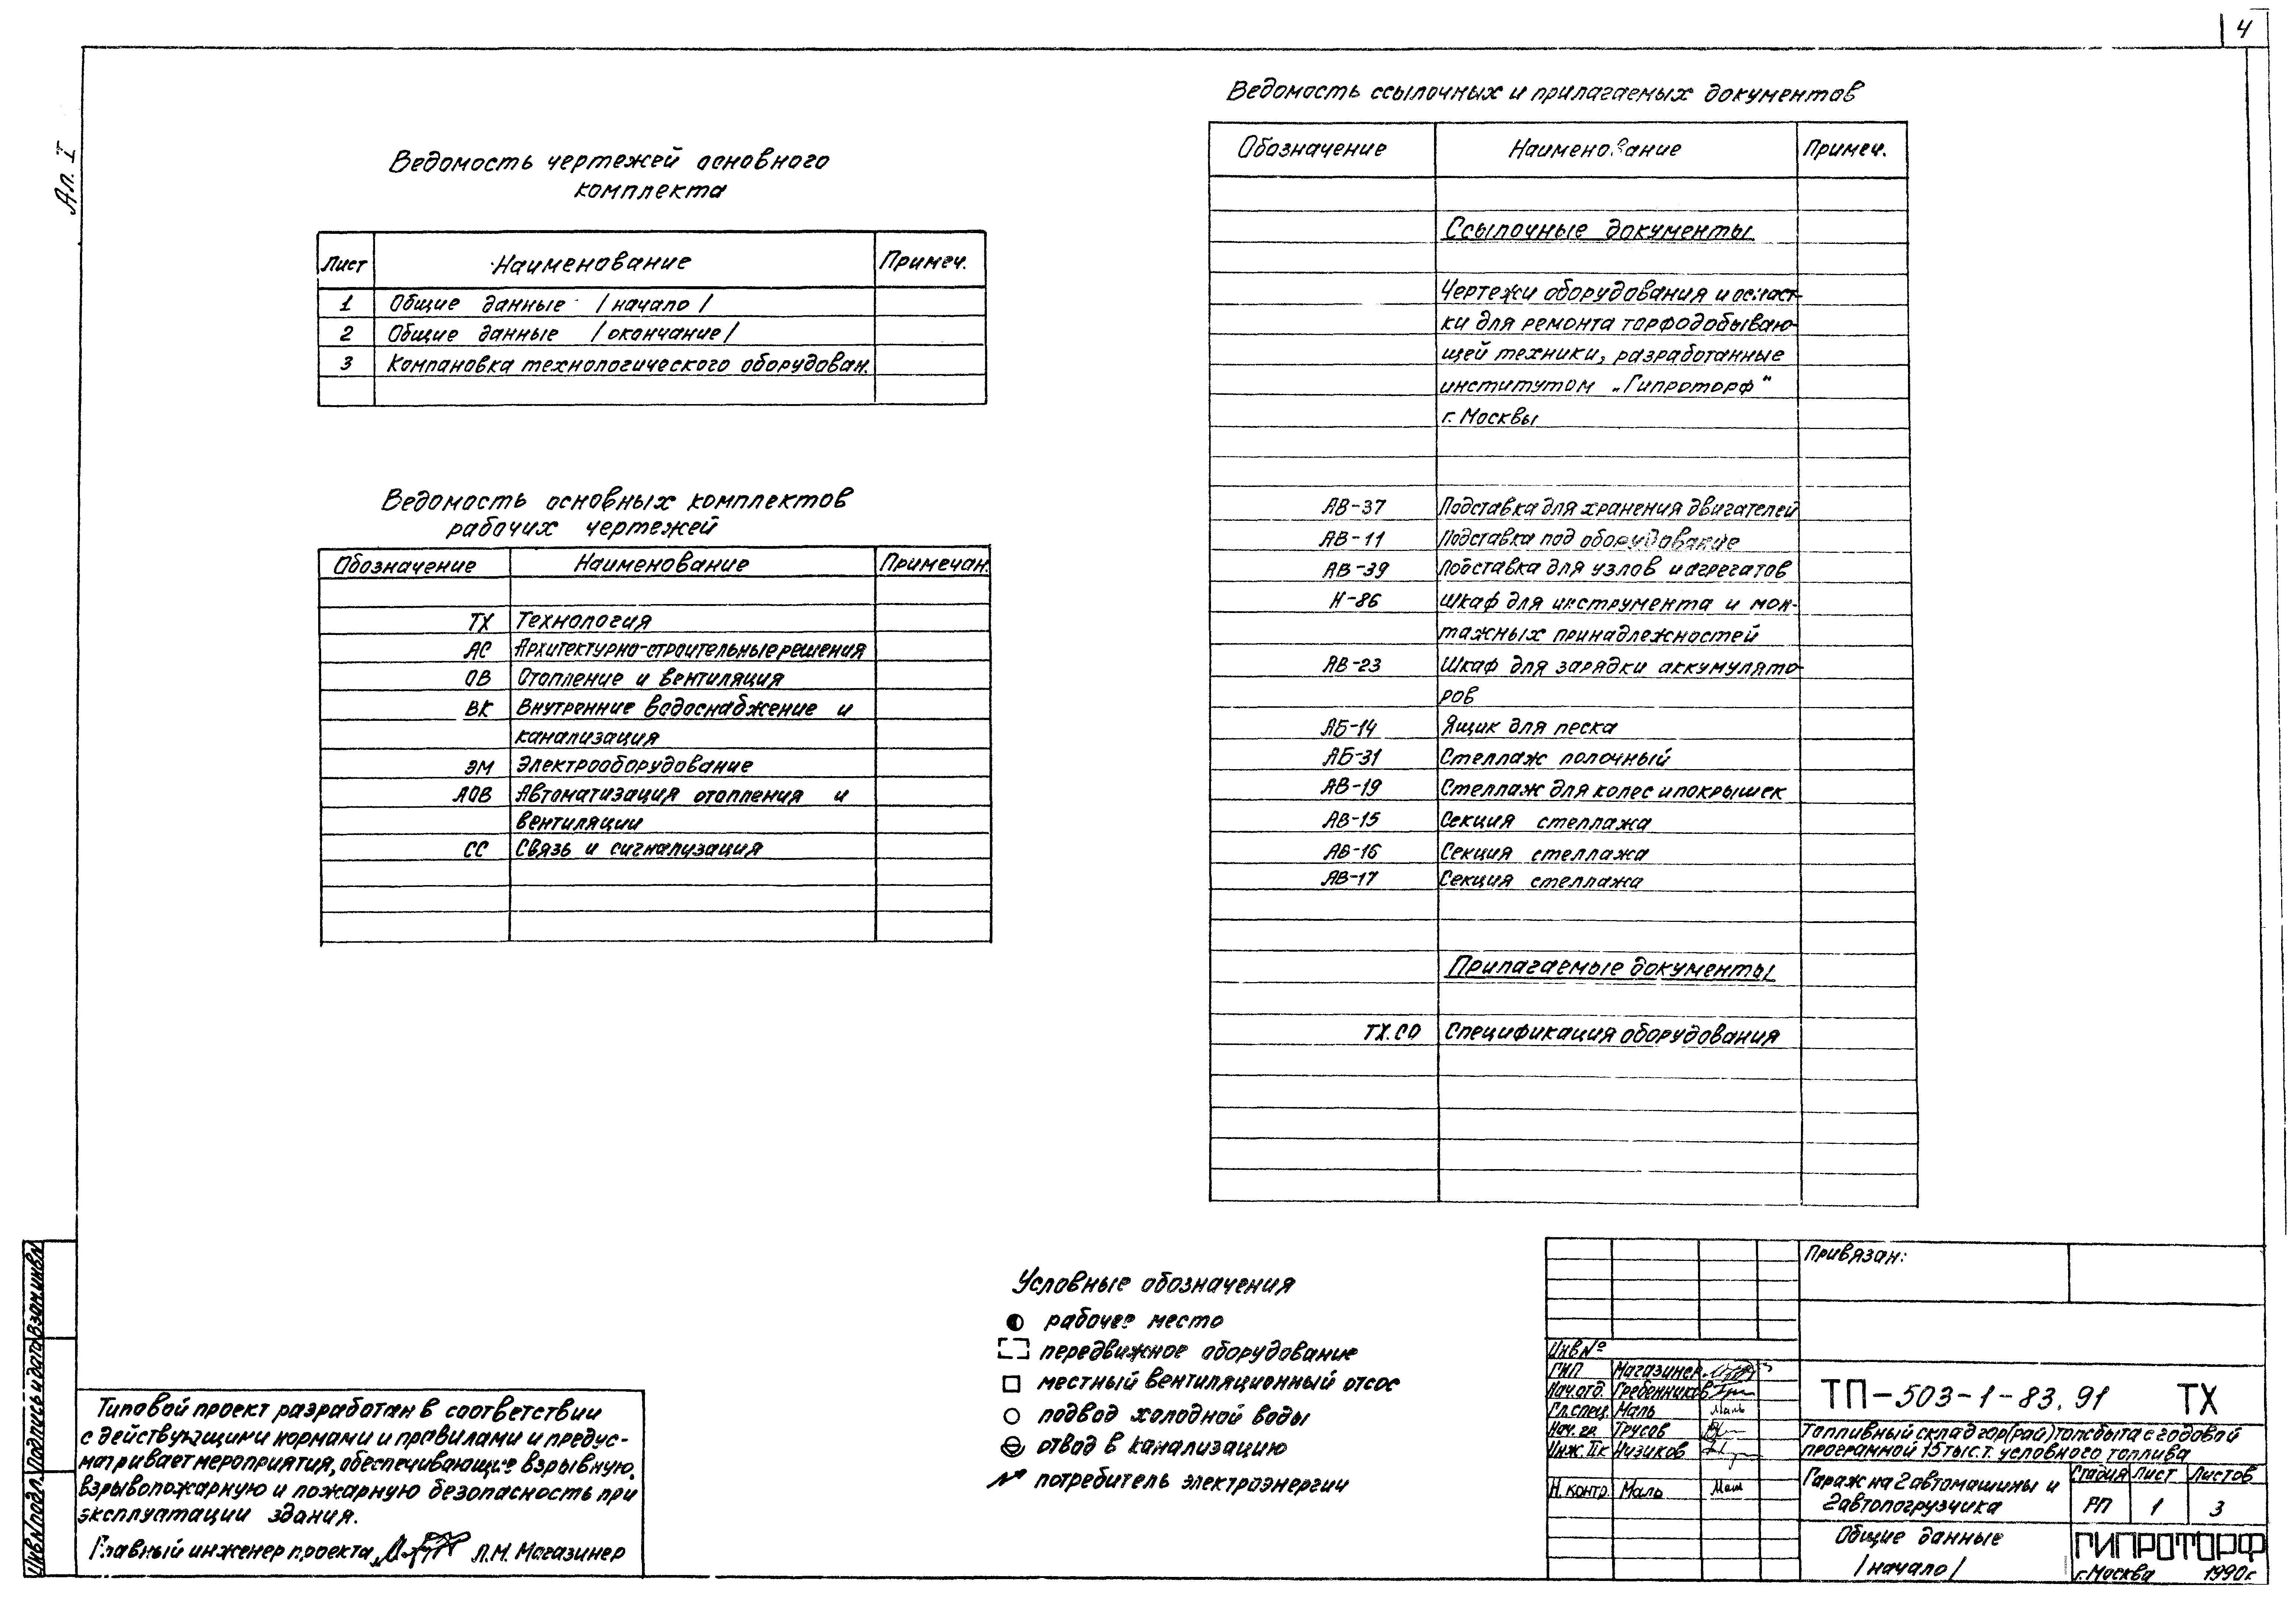 4
Ал. I
Ведомость чертежей основного
комплекта
Лист Наименование Примеч.
1 Общие данные /начало/
2 Общие данные /окончание/
3 Компановка технологического оборудован.
Ведомость основных комплектов
рабочих чертежей
Обозначение Наименование Примечан.
ТХ Технология
АС Архитектурно-строительные решения
ОВ Отопление и вентиляция
ВК Внутренние водоснабжение и
канализация
ЭМ Электрооборудование
АОВ Автоматизация отопления и
вентиляции
СС Связь и сигнализация
Ведомость ссылочных и прилагаемых документов
Обозначение Наименование Примеч.
Ссылочные документы
Чертежи оборудования и оснаст-
ки для ремонта торфодобываю-
щей техники, разработанные
институтом „Гипроторф"
г. Москвы
АВ-37 Подставка для хранения двигателей
АВ-11 Подставка под оборудование
АВ-39 Подставка для узлов и агрегатов
Н-86 Шкаф для инструмента и мон-
тажных принадлежностей
АВ-23 Шкаф для зарядки аккумулято-
ров
АБ-14 Ящик для песка
АБ-31 Стеллаж полочный
АВ-19 Стеллаж для колес и покрышек
АВ-15 Секция стеллажа
АВ-16 Секция стеллажа
АВ-17 Секция стеллажа
Прилагаемые документы
ТХ.СО Спецификация оборудования
Условные обозначения
рабочее место
передвижное оборудование
местный вентиляционный отсос
подвод холодной воды
отвод в канализацию
потребитель электроэнергии
Типовой проект разработан в соответствии
с действующими нормами и правилами и предус-
матривает мероприятия, обеспечивающие взрывную,
взрывопожарную и пожарную безопасность при
эксплуатации здания.
Главный инженер проекта Л.М. Магазинер
Инв N подл. Подпись и дата Взам.инв N
Привязан:
Инв Nº
ГИП Магазинер
Нач.отд. Гребенников
Гл.спец. Маль Маль
Нач. гр Трусов
Инж. II к Низиков
Н. контр. Маль Маль
ТП-503-1-83.91 ТХ
Топливный склад гор(рай)топсбыта с годовой
программой 15 тыс.т. условного топлива
Гараж на 2 автомашины и
2 автопогрузчика
Стадия Лист Листов
РП 1 3
Общие данные
/начало/
ГИПРОТОРФ
г. Москва 1990 г.